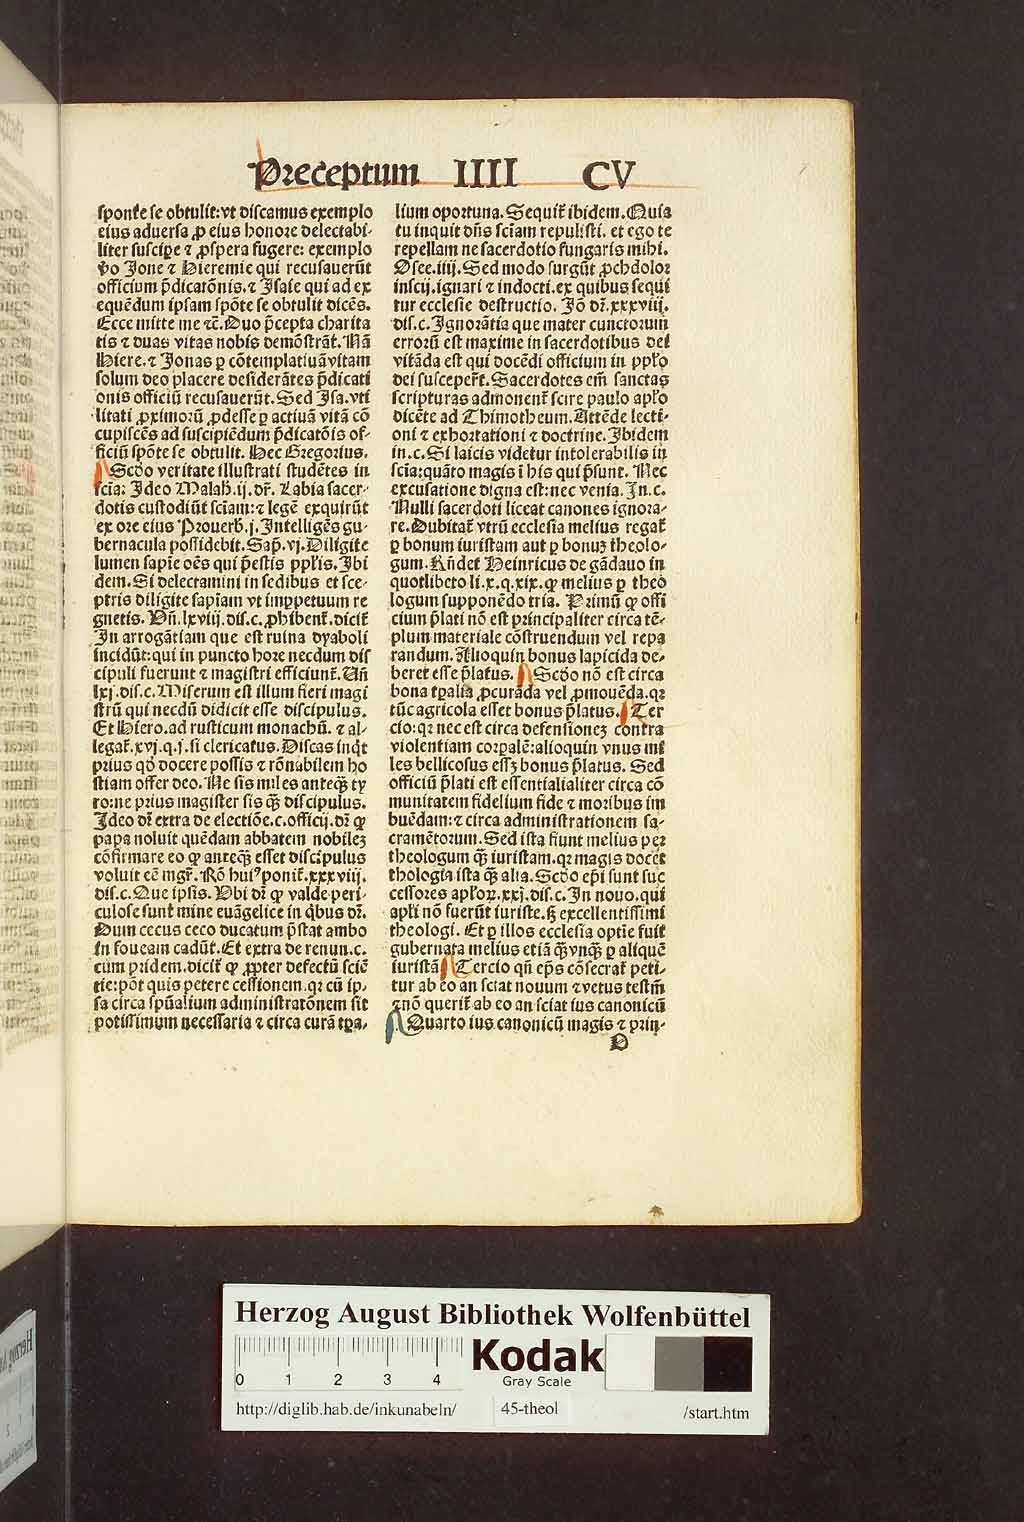 Preceptum IIII CV
sponte se obtulit:vt discamus exemplo
eius aduersa ꝓ eius honore delectabi-
liter suscipe ⁊ ꝓspera fugere: exemplo
v̄o Jone ⁊ Hieremie qui recusauerūt
officium p̄dicatōnis.⁊ Isaie qui ad ex
equēdum ipsam spōte se obtulit dicēs.
Ecce mitte me ⁊c̄.Duo p̄cepta charita
tis ⁊ duas vitas nobis demōstrāt.Nā
Hiere.⁊ Jonas ꝑ cōtemplatiuā vitam
solum deo placere desiderātes p̄dicati
onis officiū recusauerūt.Sed Isa.vti
litati ꝓximorū ꝓdesse ꝑ actiuā vitā cō
cupiscēs ad suscipiēdum p̄dicatōis of-
ficiū spōte se obtulit. Hec Gregorius.
Scd̄o veritate illustrati studētes in
sciā: Ideo Malach.ij.dr̄. Labia sacer-
dotis custodiūt sciam:⁊ legē exquirūt
ex ore eius Prouerb.j.Intelligēs gu-
bernacula possidebit.Sap̄.vj.Diligite
lumen sapīe oēs qui p̄estis pplīs.Ibi
dem.Si delectamini in sedibus et sce-
ptris diligite sapiam vt imꝑpetuum re
gnetis. Vn̄.lxviij.dis.c.ꝓhibent̄.dicit̄
In arrogātiam que est ruina dyaboli
incidūt:qui in puncto hore necdum dis
cipuli fuerunt ⁊ magistri efficiunt̄.Vn̄
lxj.dis.c.Miserum est illum fieri magi
strū qui necdū didicit esse discipulus.
Et Hiero.ad rusticum monachū. ⁊ al-
legat̄.xvj.q.j.si clericatus.Discas inq̇t
prius qd̄ docere possis ⁊ rōnabilem ho
stiam offer deo.Ne sis miles anteq̄ꝫ ty
ro:ne prius magister sis q̄ꝫ discipulus.
Ideo dr̄ extra de electiōe.c.officij.dr̄ ꝙ
papa noluit quēdam abbatem nobileꝫ
cōfirmare eo ꝙ anteq̄ꝫ esset discipulus
voluit eē mgr̄. Rō huiꝰ ponit̄.xxxviij.
dis.c.Que ipsis. Vbi dr̄ ꝙ valde peri-
culose sunt mine euāgelice in q̇bus dr̄.
Dum cecus ceco ducatum p̄stat ambo
in foueam cadūt.Et extra de renun.c.
cum pridem.dicit̄ ꝙ ꝓpter defectū sciē
tie:pōt quis petere cessionem.qꝛ cū ip-
sa circa spūalium administratōnem sit
potissimum necessaria ⁊ circa curā tꝑa-
lium oportuna.Sequit̄ ibidem.Quia
tu inquit dn̄s sciam repulisti. et ego te
repellam ne sacerdotio fungaris mihi.
Osee.iiij.Sed modo surgūt ꝓchdolor
inscij.ignari ⁊ indocti.ex quibus sequi
tur ecclesie destructio. Jō dr̄.xxxviij.
dis.c.Ignorātia que mater cunctorum
errorū est maxime in sacerdotibus dei
vitāda est qui docēdi officium in pplō
dei susceper̄t.Sacerdotes em̄ sanctas
scripturas admonent̄ scire paulo aplō
dicēte ad Thimotheum.Attēde lecti-
oni ⁊ exhortationi ⁊ doctrine.Ibidem
in.c.Si laicis videtur intolerabilis in
sciā:quāto magis ī his qui p̄sunt. Nec
excusatione digna est:nec venia.In.c.
Nulli sacerdoti liceat canones ignora-
re.Dubitat̄ vtrū ecclesia melius regat̄
ꝑ bonum iuristam aut ꝑ bonuꝫ theolo-
gum.Rn̄det Heinricus de gādauo in
quotlibeto li.x.q.xix.ꝙ melius ꝑ theo
logum supponēdo tria. Primū ꝙ offi
cium p̄lati nō est principaliter circa tē-
plum materiale cōstruendum vel repa
randum.Alioquin bonus lapicida de-
beret esse p̄latus. Scd̄o nō est circa
bona tꝑalia ꝓcurāda vel ꝓmouēda.qꝛ
tūc agricola esset bonus p̄latus. Ter
cio:qꝛ nec est circa defensioneꝫ contra
violentiam corꝑalē:alioquin vnus mi
les bellicosus essꝫ bonus p̄latus. Sed
officiū p̄lati est essentialialiter circa cō
munitatem fidelium fide ⁊ moribus im
buēdam:⁊ circa administrationem sa-
cramētorum.Sed ista fiunt melius per
theologum q̄ꝫ iuristam.qꝛ magis docet
thologia ista q̄ꝫ alia.Scd̄o ep̄i sunt suc
cessores aploꝝ.xxj.dis.c.In nouo.qui
aplī nō fuerūt iuriste.sꝫ excellentissimi
theologi. Et ꝑ illos ecclesia optie fuit
gubernata melius etiā q̄ꝫ vnq̄ꝫ ꝑ aliquē
iuristā Tercio qn̄ ep̄s cōsecrat̄ peti-
tur ab eo an sciat nouum ⁊ vetus testm̄
⁊ nō querit̄ ab eo an sciat ius canonicū
Quarto ius canonicū magis ⁊ prin-
O
Herzog August Bibliothek Wolfenbüttel
0 1 2 3 4
Kodak
Gray Scale
http://diglib.hab.de/inkunabeln/ 45-theol /start.htm